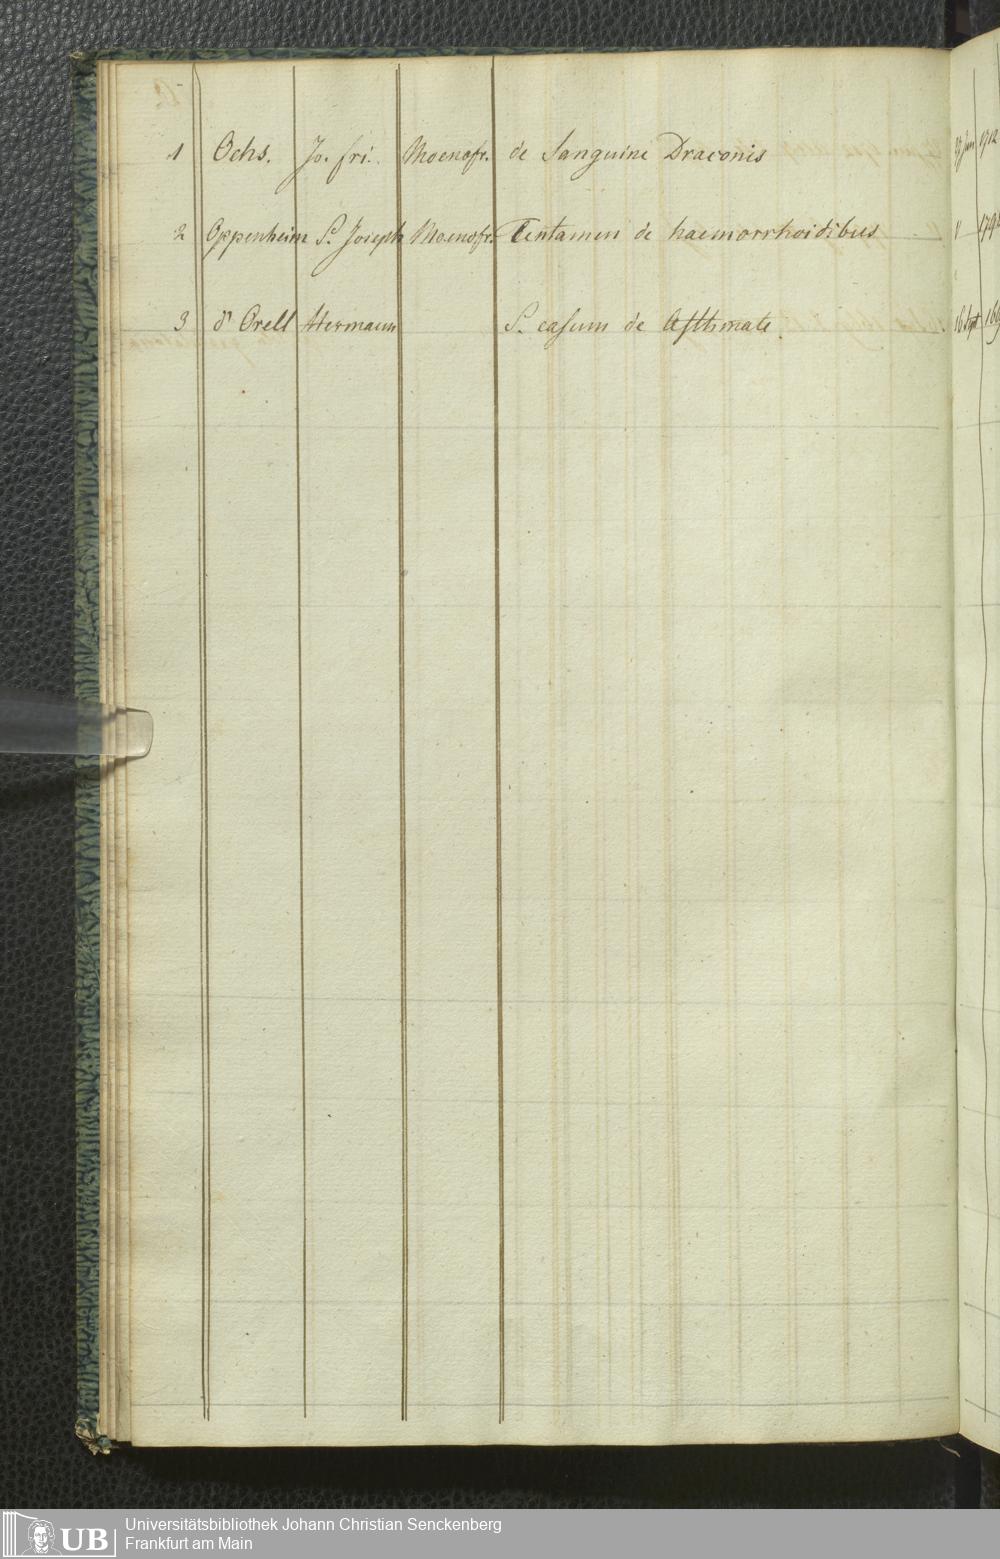 1 Ochs. Jo. fri. Moenofr. de Sanguine Draconis 1712
2 Oppenheim S. Joseph Moenofr. Tentamen de haemorrhoidibus
3 d' Orell Hermann S. casum de Asthmate 16 Sept
UB
Universitätsbibliothek Johann Christian Senckenberg
Frankfurt am Main